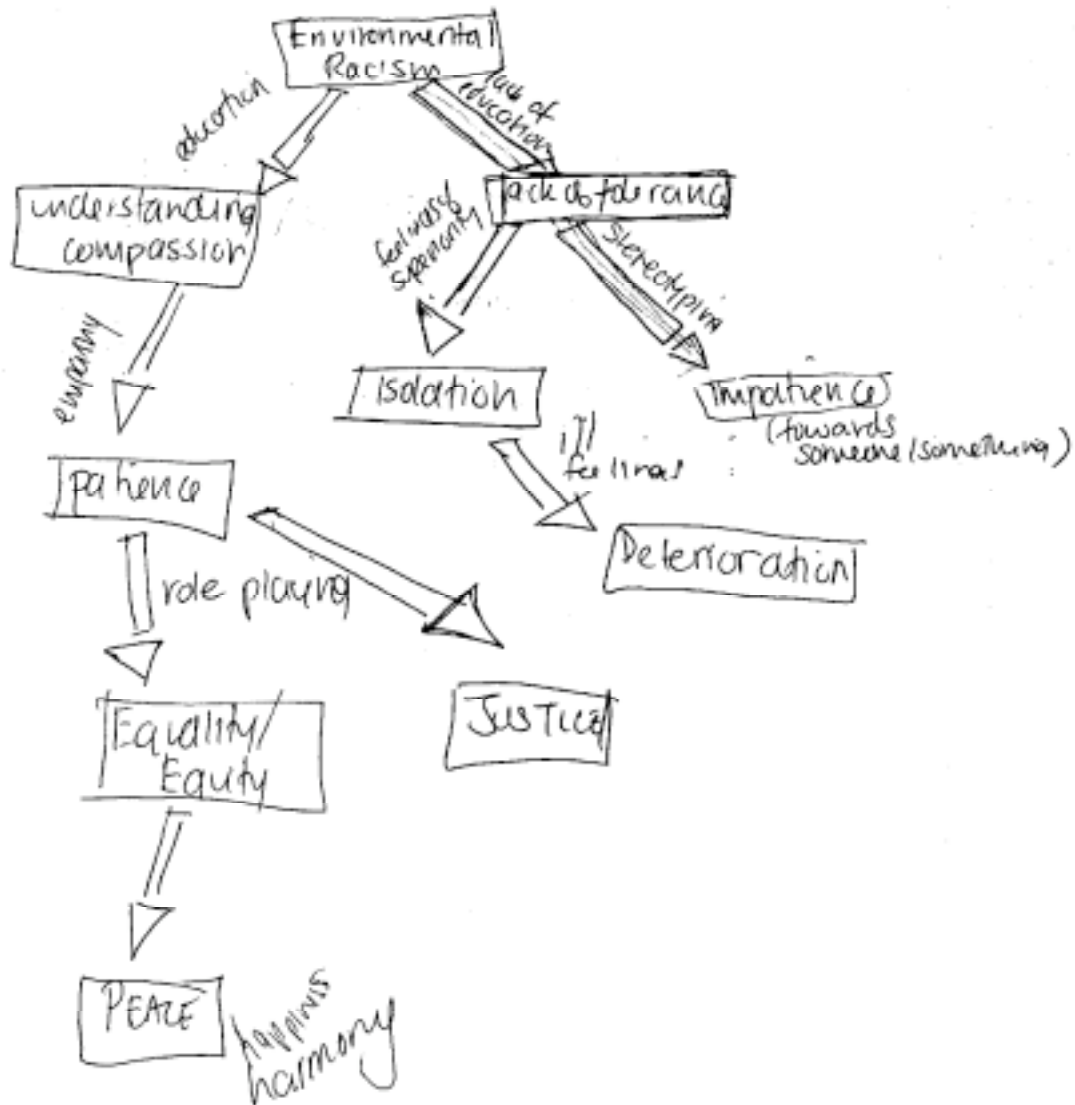 Environmental
Racism
education
lack of
education
understanding
compassion
lack of tolerance
feelings of
superiority
stereotyping
empathy
Isolation
Impatience
(towards
someone/something)
ill
feelings
patience
Deterioration
role playing
Equality/
Equity
JUSTICE
PEACE
happiness
harmony